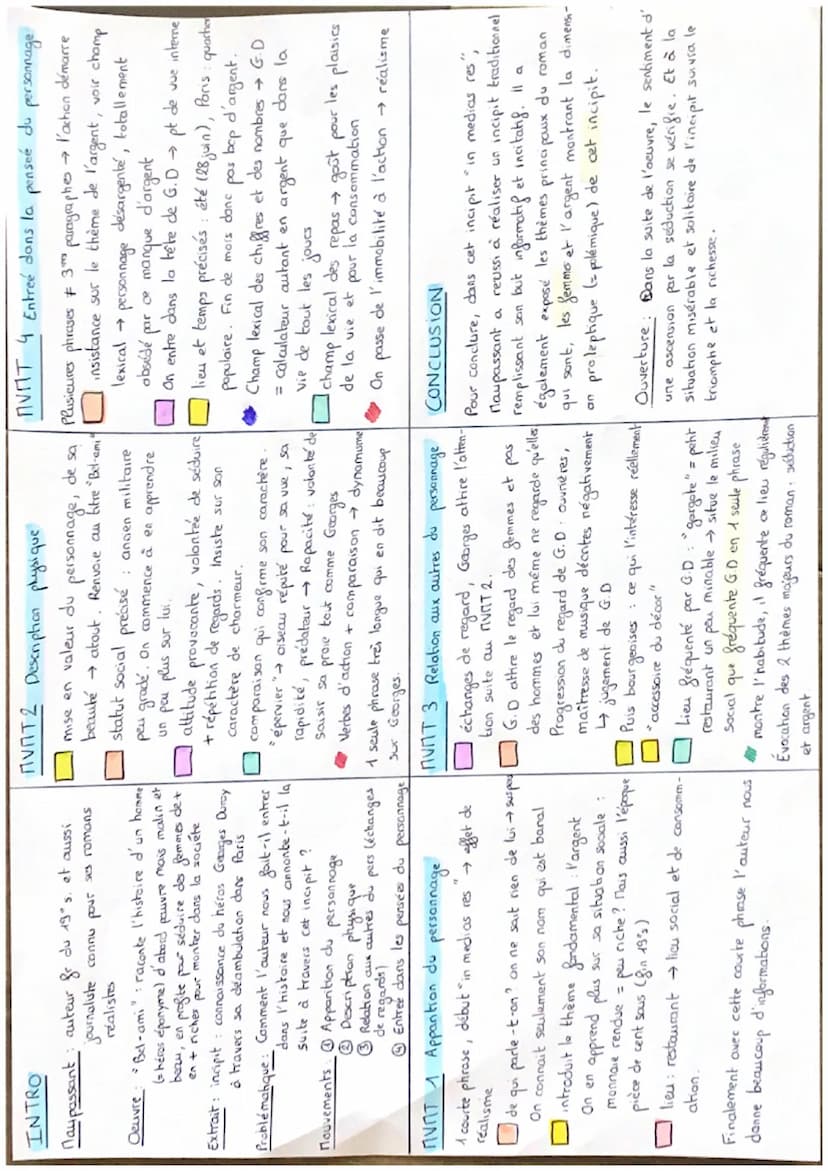 INTRO
Maupassant : auteur fr du 19e s. et aussi
journaliste connu pour ses romans
réalistes
Oeuvre : "Bel-ami" : raconte l'histoire d'un homme
(= héros éponyme) d'abord pauvre mais malin et
beau, en profite pour séduire des femmes de +
en + riches pour monter dans la société
Extrait : incipit : connaissance du héros Georges Duroy
à travers sa déambulation dans Paris
Problématique : Comment l'auteur nous fait-il entrer
dans l'histoire et nous annonce-t-il la
suite à travers cet incipit ?
Mouvements : ① Apparition du personnage
② Description physique
③ Relation aux autres du pers (échanges
de regards)
④ Entrée dans les pensées du personnage
MVMT 2 Description physique
mise en valeur du personnage, de sa
beauté → atout. Renvoie au titre "Bel-ami"
statut social précisé : ancien militaire
peu gradé. On commence à en apprendre
un peu plus sur lui.
attitude provocante, volontée de séduire
+ répétition de regards. Insiste sur son
caractère de charmeur.
comparaison qui confirme son caractère.
"épervier" → oiseau réputé pour sa vue, sa
rapidité, prédateur → Rapacité : volonté de
saisir sa proie tout comme Georges
Verbes d'action + comparaison → dynamisme
1 seule phrase très longue qui en dit beaucoup
sur Georges.
MVMT 4 Entreé dans la penseé du personnage
Plusieures phrases ≠ 3 paragraphes → l'action démarre
insistance sur le thème de l'argent, voir champ
lexical → personnage désargenté, totallement
obsédé par ce manque d'argent
On entre dans la tête de G.D → pt de vue interne
lieu et temps précisés : été (28 juin), Paris : quartier
populaire. Fin de mois donc pas bcp d'argent.
Champ lexical des chiffres et des nombres → G.D
= calculateur autant en argent que dans la
vie de tout les jours
champ lexical des repas → goût pour les plaisirs
de la vie et pour la consommation
On passe de l'immobilité à l'action → réalisme
MVMT 1 Apparition du personnage
1 courte phrase, début "in medias res" → effet de
réalisme
de qui parle-t-on ? on ne sait rien de lui →
On connait seulement son nom qui est banal
introduit le thème fondamental : l'argent
On en apprend plus sur sa situation sociale :
monnaie rendue = peu riche ? Mais aussi l'époque
pièce de cent sous (fin 19e s)
lieu : restaurant → lieu social et de consomm-
ation.
Finalement avec cette courte phrase l'auteur nous
donne beaucoup d'informations.
MVMT 3 Relation aux autres du personnage
échanges de regard, Georges attire l'atten-
tion suite au MVMT 2.
G.D attire le regard des femmes et pas
des hommes et lui même ne regarde qu'elles
Progression du regard de G.D : ouvrières,
maîtresse de musique décrites négativement
↳ jugement de G.D
Puis bourgeoises : ce qui l'intéresse réellement
"accessoire du décor"
Lieu fréquenté par G.D : "gargote" = petit
restaurant un peu minable → situe le milieu
social que fréquente G.D en 1 seule phrase
montre l'habitude, il fréquente ce lieu régulièrement
Évocation des 2 thèmes majeurs du roman : séduction
et argent
CONCLUSION
Pour conclure, dans cet incipit "in medias res",
Maupassant a réussi à réaliser un incipit traditionnel
remplissant son but informatif et incitatif. Il a
également exposé les thèmes principaux du roman
qui sont, les femme et l'argent montrant la dimensi-
on proleptique (= polémique) de cet incipit.
Ouverture : Dans la suite de l'oeuvre, le sentiment d'
une ascension par la séduction se vérifie. Et à la
situation misérable et solitaire de l'incipit suivra le
triomphe et la richesse.